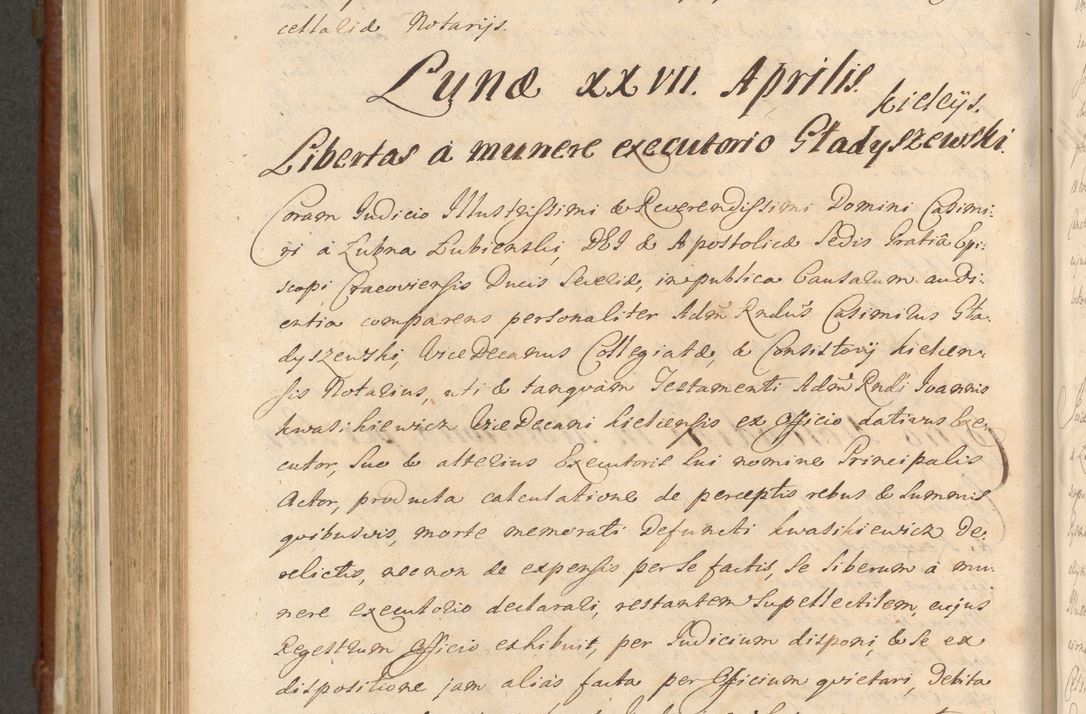 cellariæ Notarijs.
Lunæ XXVII. Aprilis.
Kielcijs.
Libertas à munere executorio Gładyszewski.
Coram Iudicio Illustrissimi & Reverendissimi Domini Casimi-
ri à Łubna Łubienski, DEI & Apostolicæ Sedis Gratiâ Epi-
scopi Cracoviensis Ducis Severiæ, in publica Causarum audi-
entia comparens personaliter Adm Rndus Casimirus Gła-
dyszewski, Vice Decanus Collegiatæ, & Consistorij Kielcen-
sis Notarius, uti & tanquam Testamenti Adm Rndi Ioannis
Kwasikiewicz Vice Decani Kielcensis ex Officio dativus Exe-
cutor, suo & alterius Executoris sui nomine Principalis
Actor, producta calculatione de perceptis rebus & summis
quibusvis, morte memorati Defuncti Kwasikiewicz De-
relictis, nec non de expensis per se factis, se liberum à mu-
nere executorio declarari, restantem Supellectilem, cujus
Regestrum Officio exhibuit, per Iudicium disponi, & se ex
dispositione jam alias facta per Officium quietari, Debita